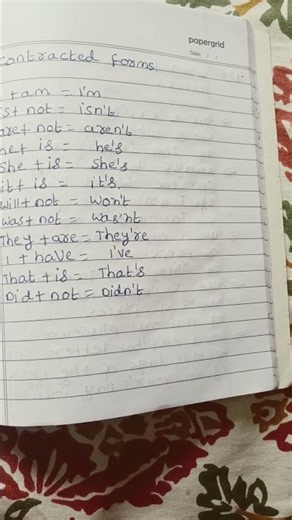 papergrid
Date: / /
contracted forms
+ am = I'm
is + not = isn't
are + not = aren't
he + is = he's
She + is = she's
it + is = it's.
will + not = won't
was + not = was'nt
They + are = They're
I + have = I've
That + is = That's
Did + not = Didn't